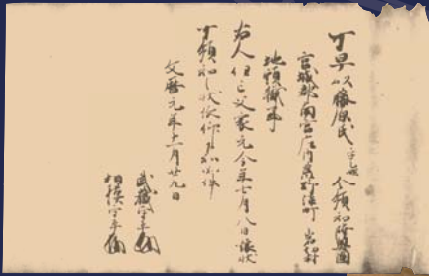 可早以藤原氏令領知陸奥國
宮城郡南宮庄内荒野漆町岩切村
地頭職事
右人任亡父家元今年七月八日譲状
可領知之状依仰下知如件
文暦元年十一月廿九日
武蔵守平
相模守平